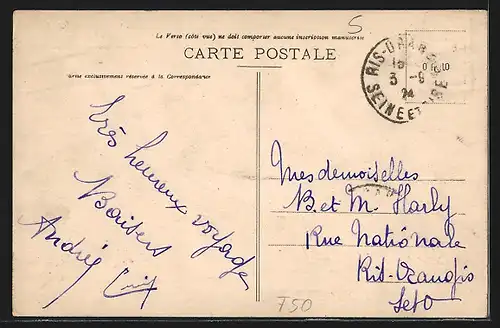 Le Verso (côté vue) ne doit comporter aucune inscription manuscrite
5
CARTE POSTALE
RIS-ORANGIS
3 -9
24
SEINE ET OISE
Partie exclusivement réservée à la Correspondance
Très heureux voyage
Baisers
André
Mesdemoiselles
B. et M. Harly
Rue Nationale
Ris-Orangis
SetO
750